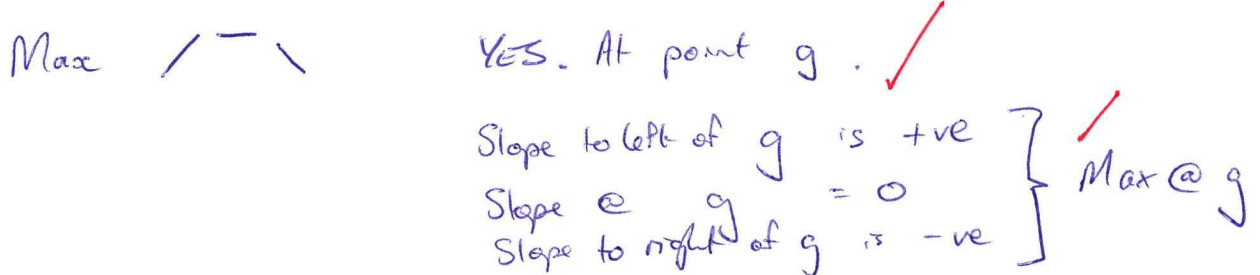 Max YES. At point g.
Slope to left of g is +ve
Slope @ g = 0
Slope to right of g is -ve
Max @ g